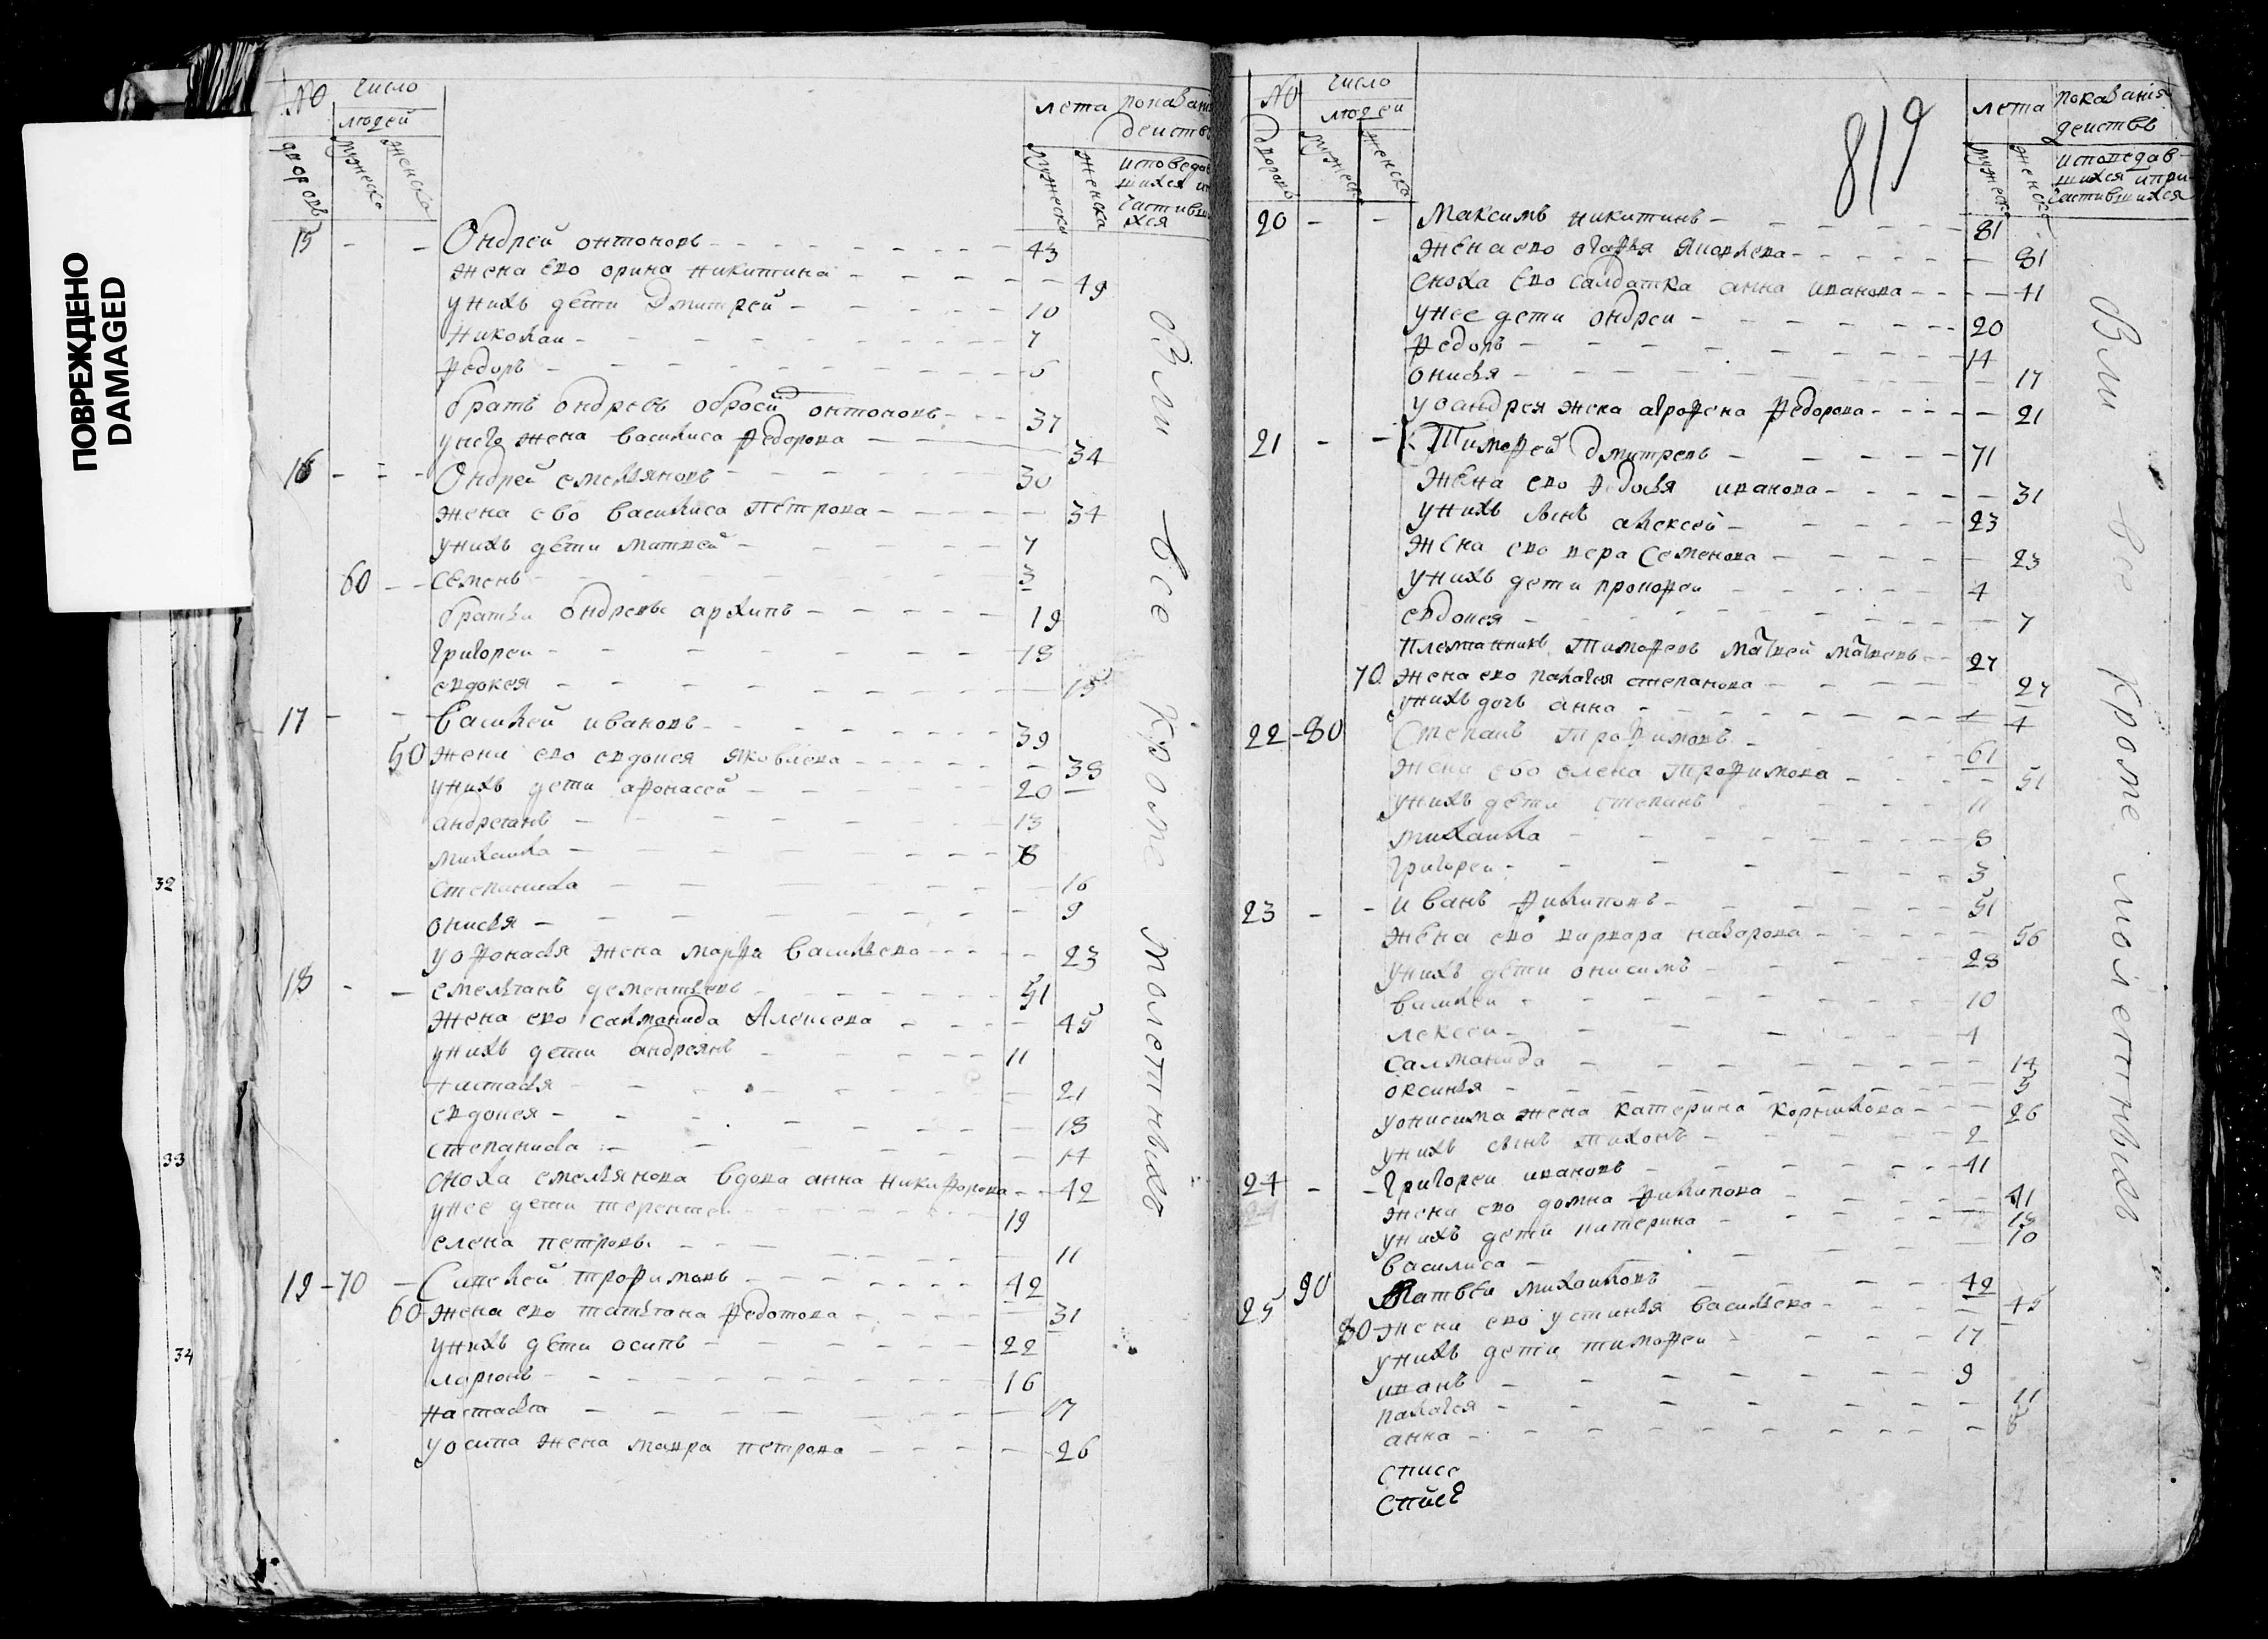 ПОВРЕЖДЕНО
DAMAGED
32
33
34
№ число лета показани
людей деиств
дворовъ мужеска женска мужеска женска исповедав
шихся и
частивш
ихся
15 - - Ондрей онтоновъ 43
жена ево орина никитина 49
унихъ дети Дмитрей 10
николаи 7
федоръ 5
братъ ондревъ обросй онтоновъ 37
унего жена василиса федорова 34
16 - - Ондрей емельяновъ 30
жена ево василиса петрова 34
унихъ дети матвей 7
60 - - семенъ 3
братья ондревы архипъ 19
григореи 18
евдокея 15
17 - - василей ивановъ 39
50 жена ево евдокея яковлева 38
унихъ дети афонасей 20
андреянъ 13
михаила 8
степанида 16
онисья 9
уофонасья жена марфа васильева 23
18 - - емельянъ дементьевъ 51
жена ево салманида Алексеева 45
унихъ дети андреянъ 11
настасья 21
евдокея 18
степанида 14
сноха емельянова вдова анна никифорова 42
унее дети терентеи 19
елена петровы 11
19 - 70 - трофимовъ 42
60 жена ево татьяна федотова 31
унихъ дети осипъ 22
ларионъ 16
настасья 17
уосипа жена мавра петрова 26
Вси все кроме молетныхъ
819
№ число лета показания
людеи деиствъ
дворовъ мужеска женска мужеска женска исповедав-
шихся и при-
частившихся
20 - - Максимъ никитинъ 81
жена ево яковлева 81
сноха ево салдатка анна иванова 41
унее дети ондреи 20
федоръ 14
онисья 17
уоандрея жена агрофена федорова 21
21 - - Тимофей дмитревъ 71
жена ево федосья иванова 31
унихъ сынъ алексей 23
жена ево вера семенова 23
унихъ дети прокофеи 4
евдокея 7
племянникъ тимофеевъ матвей матвеевъ 27
70 жена ево палагея степанова 27
унихъ дочь анна 4
22 - 80 Степанъ трофимовъ 61
жена ево елена трофимова 51
унихъ дети степанъ 11
михаила 8
григореи 3
23 - - иванъ филиповъ 51
жена ево варвара назарова 56
унихъ дети онисимъ 28
василеи 10
лексеи 4
салманида 14
оксинья 5
уонисима жена катерина 26
унихъ сынъ тихонъ 2
24 - - григореи ивановъ 41
жена ево домна филипова 41
унихъ дети катерина 18
василиса 10
25 90 Матвеи михаиловъ 42
80 жена ево устинья васильева 45
унихъ дети тимофеи 17
иванъ 9
палагея 11
анна 8
списе
списе
Вси все кроме молетныхъ